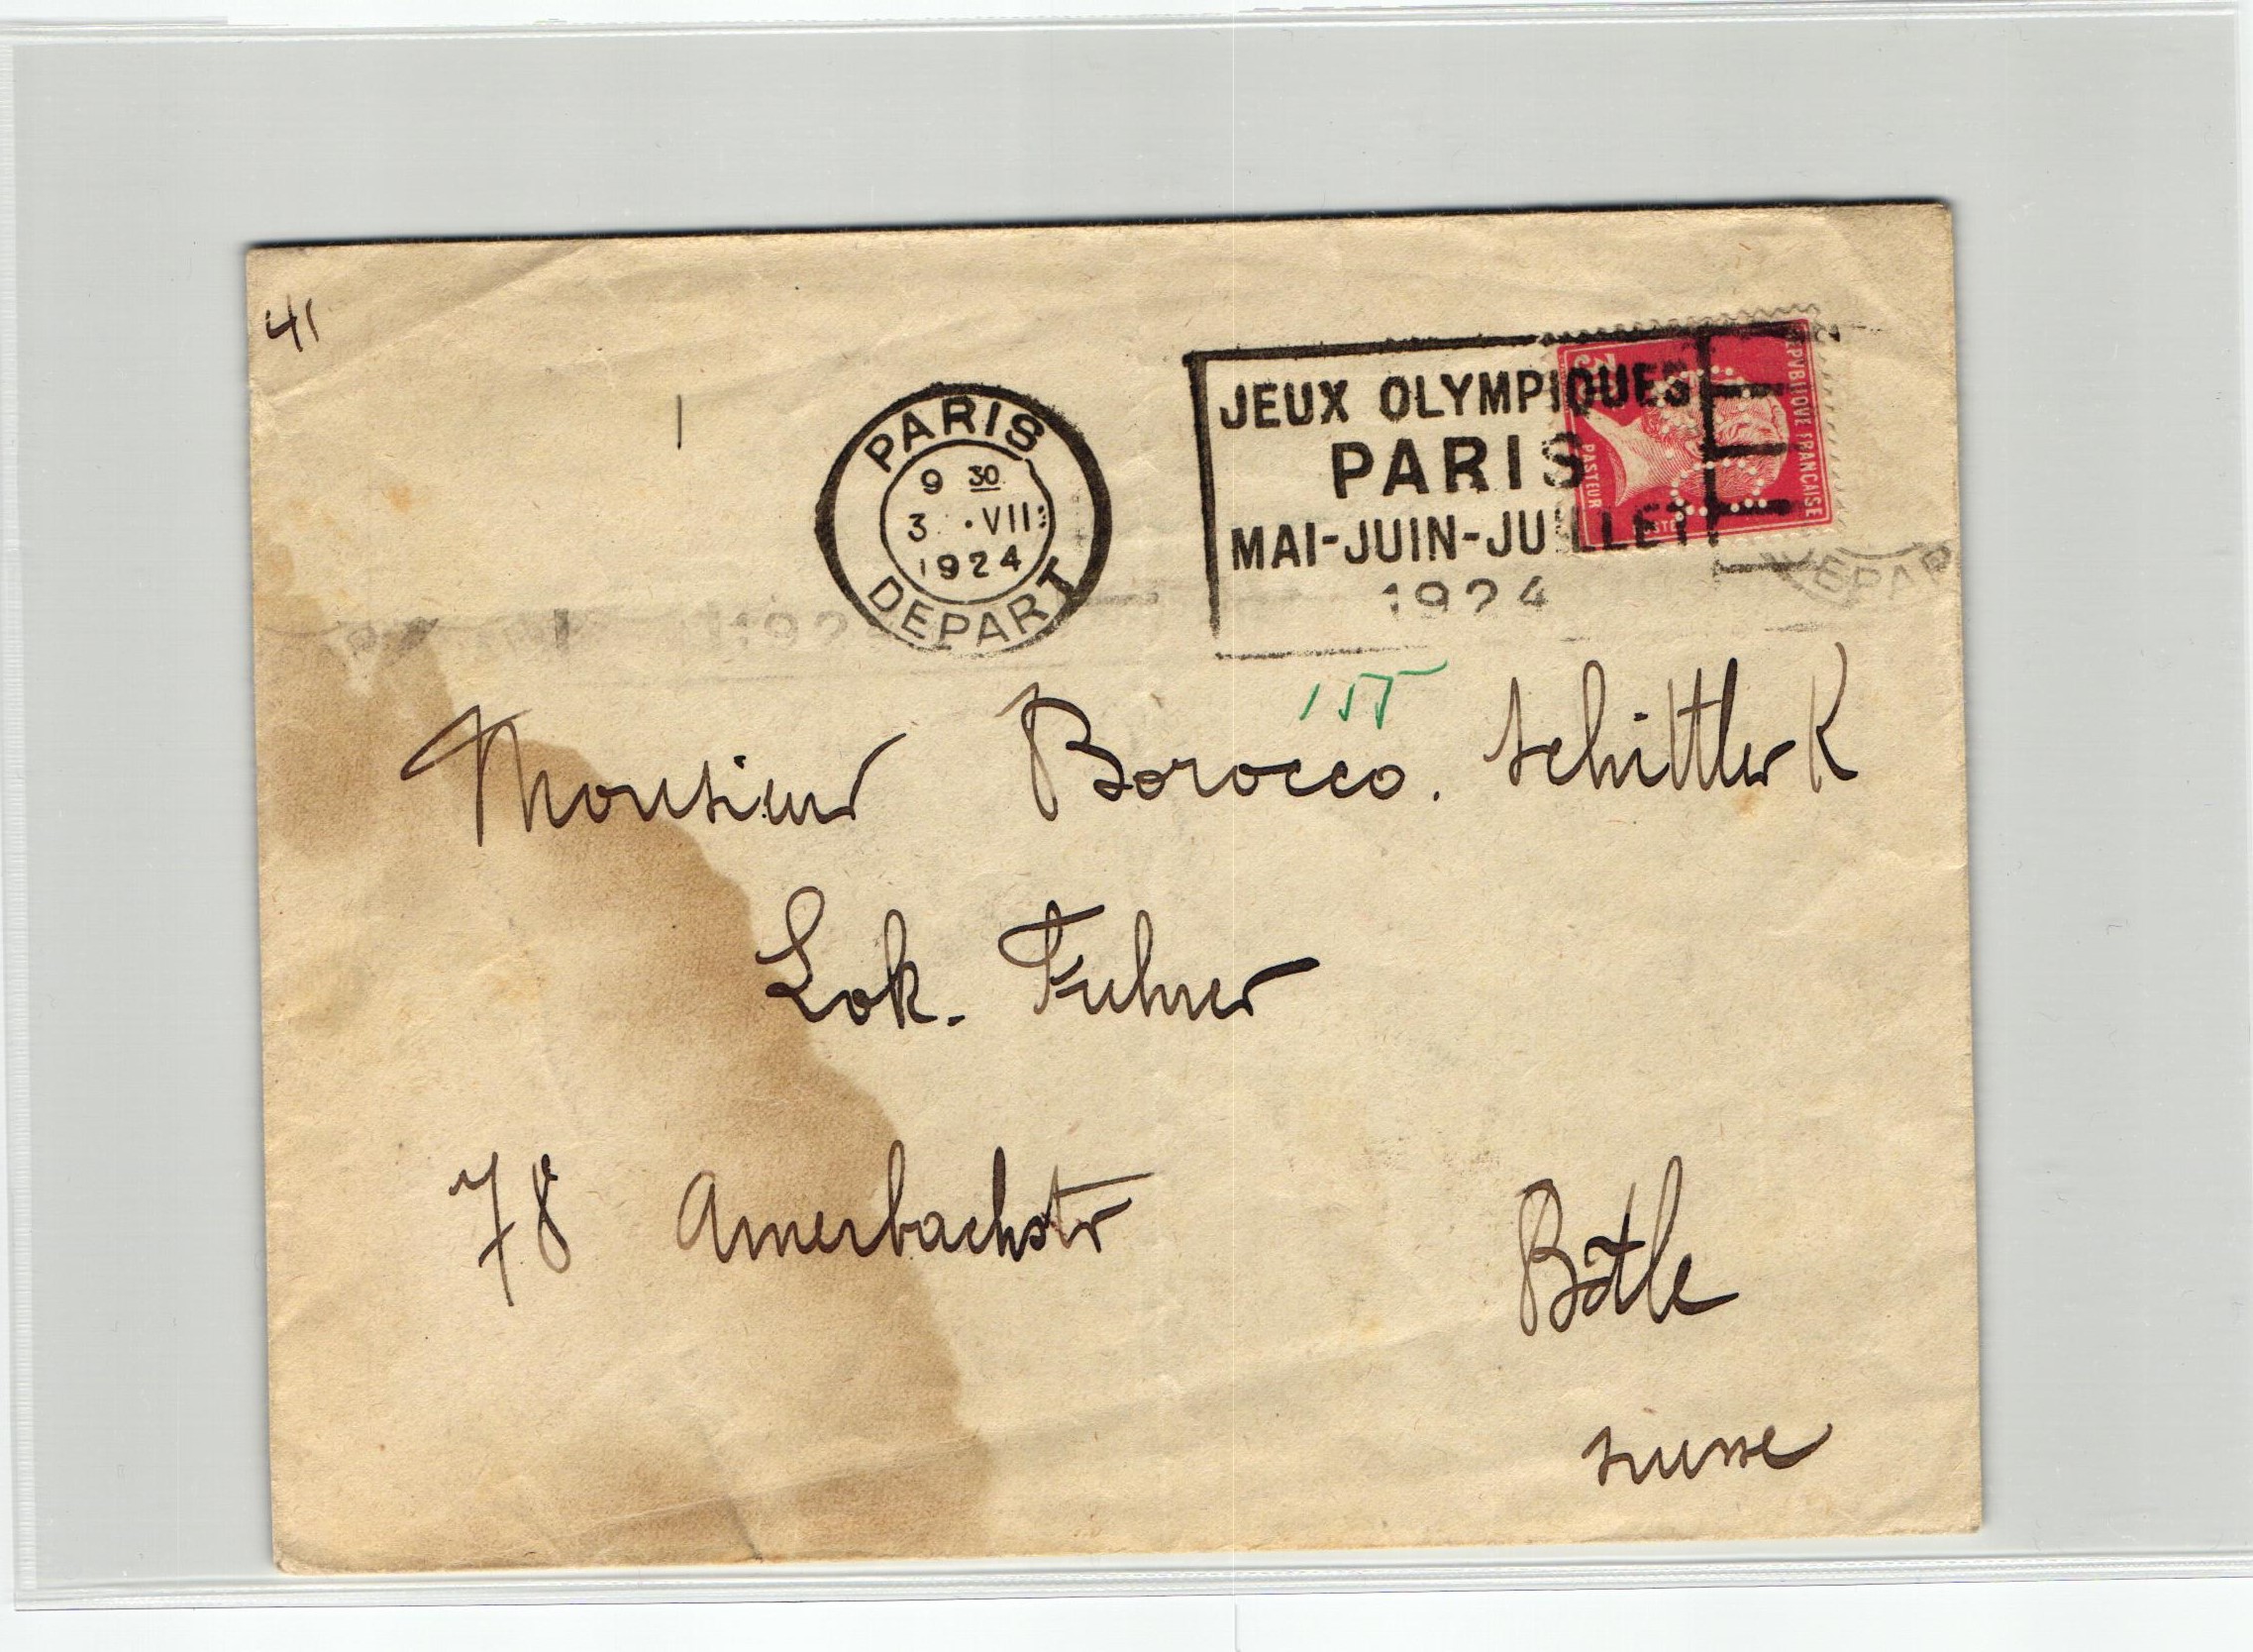 41
PARIS
9 30
3 · VII
1924
DEPART
JEUX OLYMPIQUES
PARIS
MAI-JUIN-JUILLET
1924
REPVBLIQVE FRANCAISE
PASTEUR
DEPAR
192
155
Monsieur Borocco. Schittler K
Lok. Fuhrer
78 Amerbachstr
Bâsle
suisse